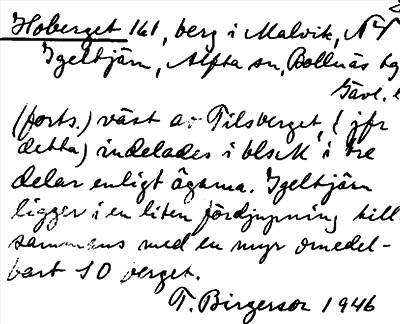 Hoberget 161, berg i Malvik, NT
Igeltjärn, Alfta sn, Bollnäs tg
Gävl. l
(forts.) väst av Pilsberget, (jfr
detta) indelades i blsM i tre
delar enligt ägarna. Igeltjärn
ligger i en liten fördjupning till-
sammans med en myr omedel-
bart SO berget.
T. Birgersor 1946